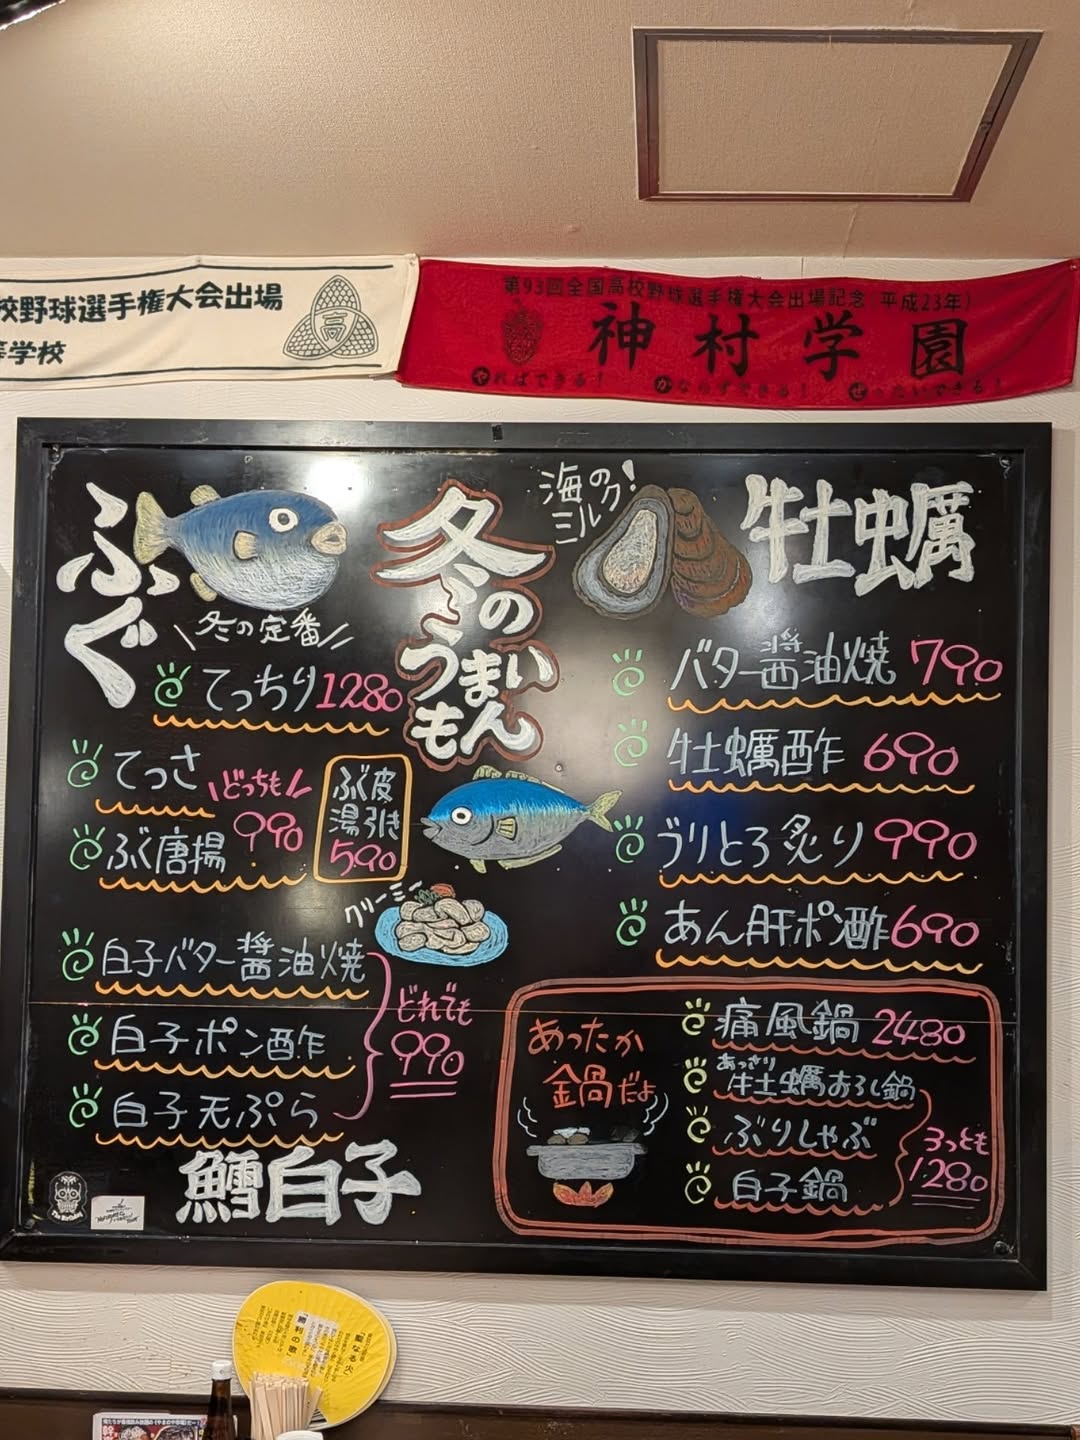 校野球選手権大会出場
等学校
高
第93回全国高校野球選手権大会出場記念(平成23年)
神村学園
やればできる! かならずできる! ぜったいできる!
ふぐ
冬の定番
てっちり 1280
てっさ
ふぐ唐揚
どっちも
990
ふぐ皮
湯引き
590
冬の
うまい
もん
海の
ミルク!
牡蠣
バター醤油焼 790
牡蠣酢 690
ブリとろ炙り 990
あん肝ポン酢 690
クリーミー
白子バター醤油焼
白子ポン酢
白子天ぷら
どれでも
990
鱈白子
あったか
鍋だよ
痛風鍋 2480
あっさり
牡蠣おろし鍋
ぶりしゃぶ
白子鍋
3つとも
1280
The Birthday